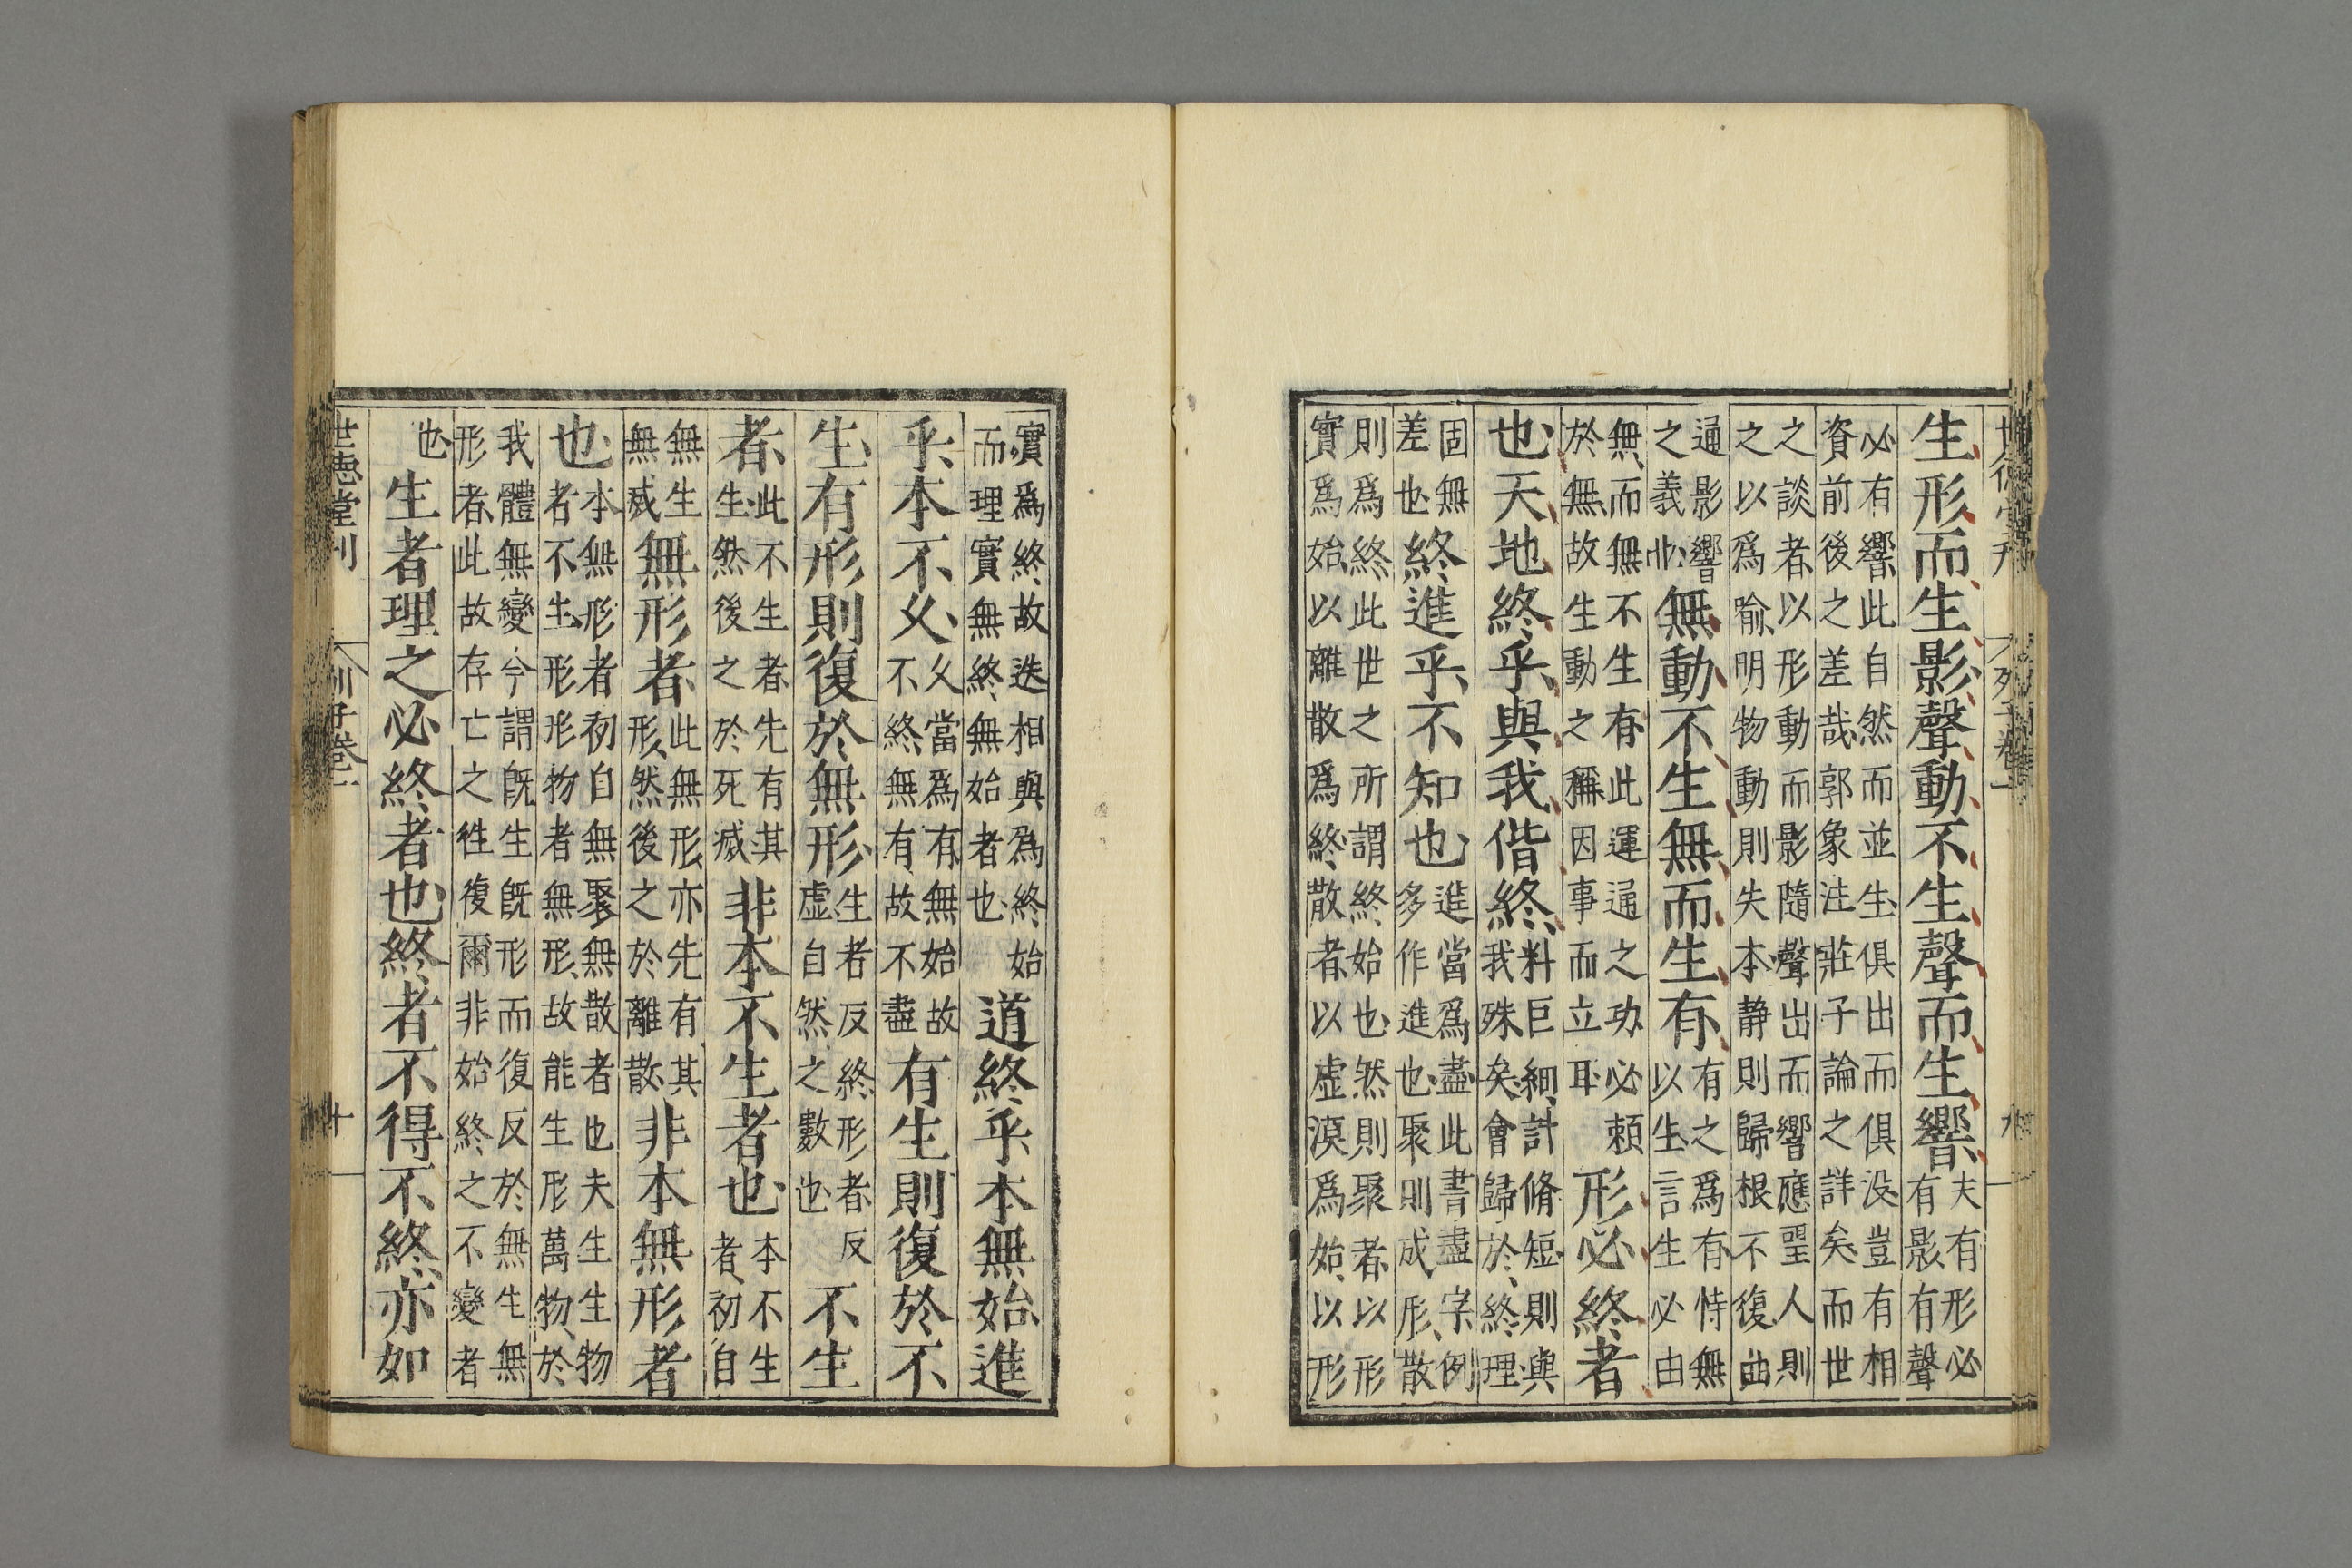 世德堂刊 列子卷一 九
生形而生影聲動不生聲而生響夫有形必
有影有聲
必有響此自然而並生俱出而俱没豈有相
資前後之差哉郭象注莊子論之詳矣而世
之談者以形動而影隨聲出而響應聖人則
之以爲喻明物動則失本静則歸根不復曲
通影響
之義也無動不生無而生有有之爲有恃無
以生言生必由
無而無不生有此運通之功必頼
於無故生動之稱因事而立耳形必終者
也天地終乎與我偕終料巨細計脩短則與
我殊矣會歸於終理
固無
差也終進乎不知也進當爲盡此書盡字例
多作進也聚則成形散
則爲終此世之所謂終始也然則聚者以形
實爲始以離散爲終散者以虚漠爲始以形
實爲終故迭相與爲終始
而理實無終無始者也道終乎本無始進
乎本不久久當爲有無始故
不終無有故不盡有生則復於不
生有形則復於無形生者反終形者反
虚自然之數也不生
者此不生者先有其
生然後之於死滅非本不生者也本不生
者初自
無生
無滅無形者此無形亦先有其
形然後之於離散非本無形者
也本無形者初自無聚無散者也夫生生物
者不生形形物者無形故能生形萬物於
我體無變今謂既生既形而復反於無生無
形者此故存亡之徃復爾非始終之不變者
也生者理之必終者也終者不得不終亦如
世德堂刊 列子卷一 十